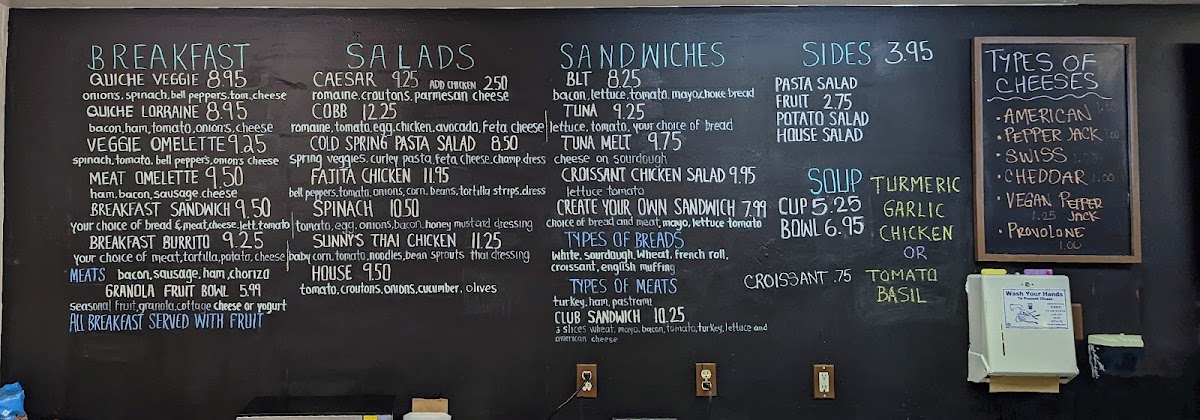 BREAKFAST
QUICHE VEGGIE 8.95
onions, spinach, bell peppers, tom, cheese
QUICHE LORRAINE 8.95
bacon, ham, tomato, onions, cheese
VEGGIE OMELETTE 9.25
spinach, tomato, bell peppers, onions cheese
MEAT OMELETTE 9.50
ham, bacon, sausage cheese
BREAKFAST SANDWICH 9.50
your choice of bread & meat, cheese, lett, tomato
BREAKFAST BURRITO 9.25
your choice of meat, tortilla, potato, cheese
MEATS bacon, sausage, ham, chorizo
GRANOLA FRUIT BOWL 5.99
seasonal fruit, granola, cottage cheese or yogurt
ALL BREAKFAST SERVED WITH FRUIT
SALADS
CAESAR 9.25 ADD CHICKEN 2.50
romaine, croutons, parmesan cheese
COBB 12.25
romaine, tomato, egg, chicken, avocado, feta cheese
COLD SPRING PASTA SALAD 8.50
spring veggies, curley pasta, feta, cheese, champ, dress
FAJITA CHICKEN 11.95
bell peppers, tomato, onions, corn, beans, tortilla strrps, dress
SPINACH 10.50
tomato, egg, onions, bacon, honey mustard dressing
SUNNY'S THAI CHICKEN 11.25
baby corn, tomato, noodles, bean sprouts thai dressing
HOUSE 9.50
tomato, croutons, onions, cucumber, olives
SANDWICHES
BLT 8.25
bacon, lettuce, tomato, mayo, choice bread
TUNA 9.25
lettuce, tomato, your choice of bread
TUNA MELT 9.75
cheese on sourdough
CROISSANT CHICKEN SALAD 9.95
lettuce tomato
CREATE YOUR OWN SANDWICH 7.99
choice of bread and meat, mayo, lettuce tomato
TYPES OF BREADS
white, sourdough, wheat, french roll,
croissant, english muffing
TYPES OF MEATS
turkey, ham, pastrami
CLUB SANDWICH 10.25
3 slices wheat, mayo, bacon, tomato, turkey, lettuce and
american cheese
SIDES 3.95
PASTA SALAD
FRUIT 2.75
POTATO SALAD
HOUSE SALAD
SOUP
CUP 5.25
BOWL 6.95
TURMERIC
GARLIC
CHICKEN
OR
TOMATO
BASIL
CROISSANT .75
TYPES OF
CHEESES
• AMERICAN
• PEPPER JACK
• SWISS
• CHEDDAR 1.00
• VEGAN PEPPER
1.25 JACK
• PROVOLONE
1.00
Wash Your Hands